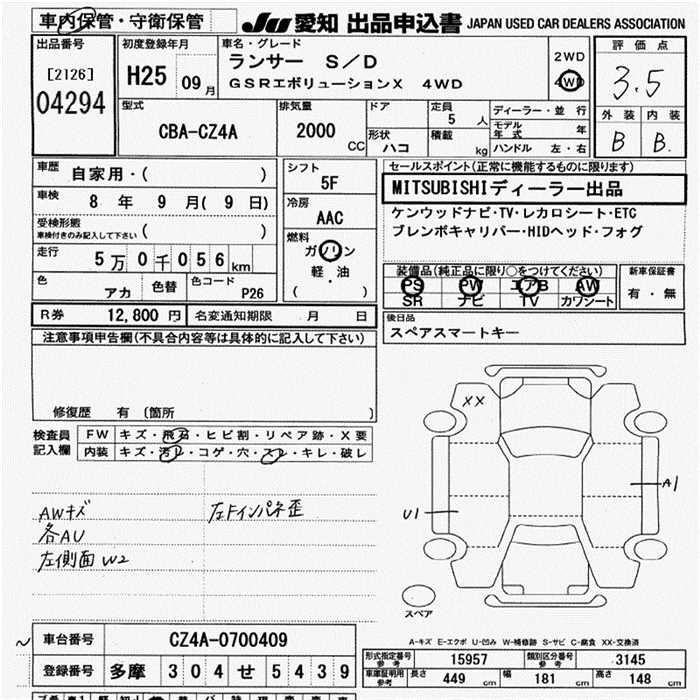 車内保管・守衛保管
JU 愛知 出品申込書 JAPAN USED CAR DEALERS ASSOCIATION
出品番号
[2126]
04294
初度登録年月
H25 09月
車名・グレード
ランサー S/D
GSRエボリューションX 4WD
2WD
4WD
評価点
3.5
外装 内装
B B.
型式
CBA-CZ4A
排気量
2000 CC
ドア
形状 ハコ
定員 5 人
積載 kg
ディーラー・並行
モデル年式 年
ハンドル 左・右
車歴 自家用・( )
車検 8 年 9 月( 9 日)
受検形態
車検付きのみ記入して下さい ( )
走行 5万0千056km
色 アカ 色替 色コード P26
シフト
5F
冷房
AAC
燃料
ガソリン
軽・油
( )
セールスポイント(正常に機能するものに限ります)
MITSUBISHIディーラー出品
ケンウッドナビ・TV・レカロシート・ETC
ブレンボキャリパー・HIDヘッド・フォグ
装備品(純正品に限り○をつけてください)
PS PW エアB AW
SR ナビ TV カワシート
新車保証書
有・無
R券 12,800 円 名変通知期限 月 日
後日品
スペアスマートキー
注意事項申告欄(不具合内容等は具体的に記入して下さい)
修復歴 有〔箇所 〕
検査員記入欄
FW キズ・飛石・ヒビ割・リペア跡・X要
内装 キズ・汚レ・コゲ・穴・スレ・キレ・破レ
AWキズ
各AU
左側面W2
左Fインパネ歪
XX
A1
U1
スペア
A-キズ E-エクボ U-凹み W-補修跡 S-サビ C-腐食 XX-交換済
車台番号 CZ4A-0700409
登録番号 多摩 304 せ 5439
形式指定番号 参考 15957 類別区分番号 参考 3145
車庫証明用 参考 長さ 449 cm 幅 181 cm 高さ 148 cm